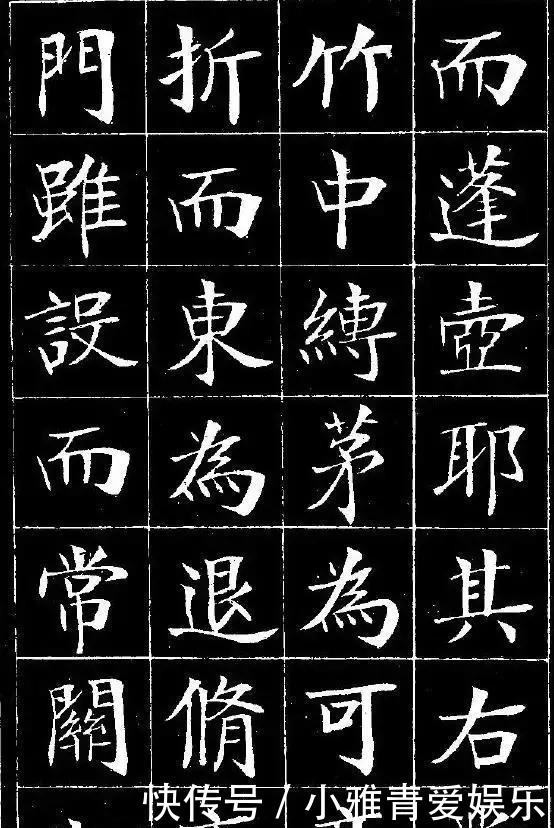 而蓬壺耶其右
竹中縛茅為可
折而東為退脩
門雖設而常關
快传号/小雅青爱娱乐